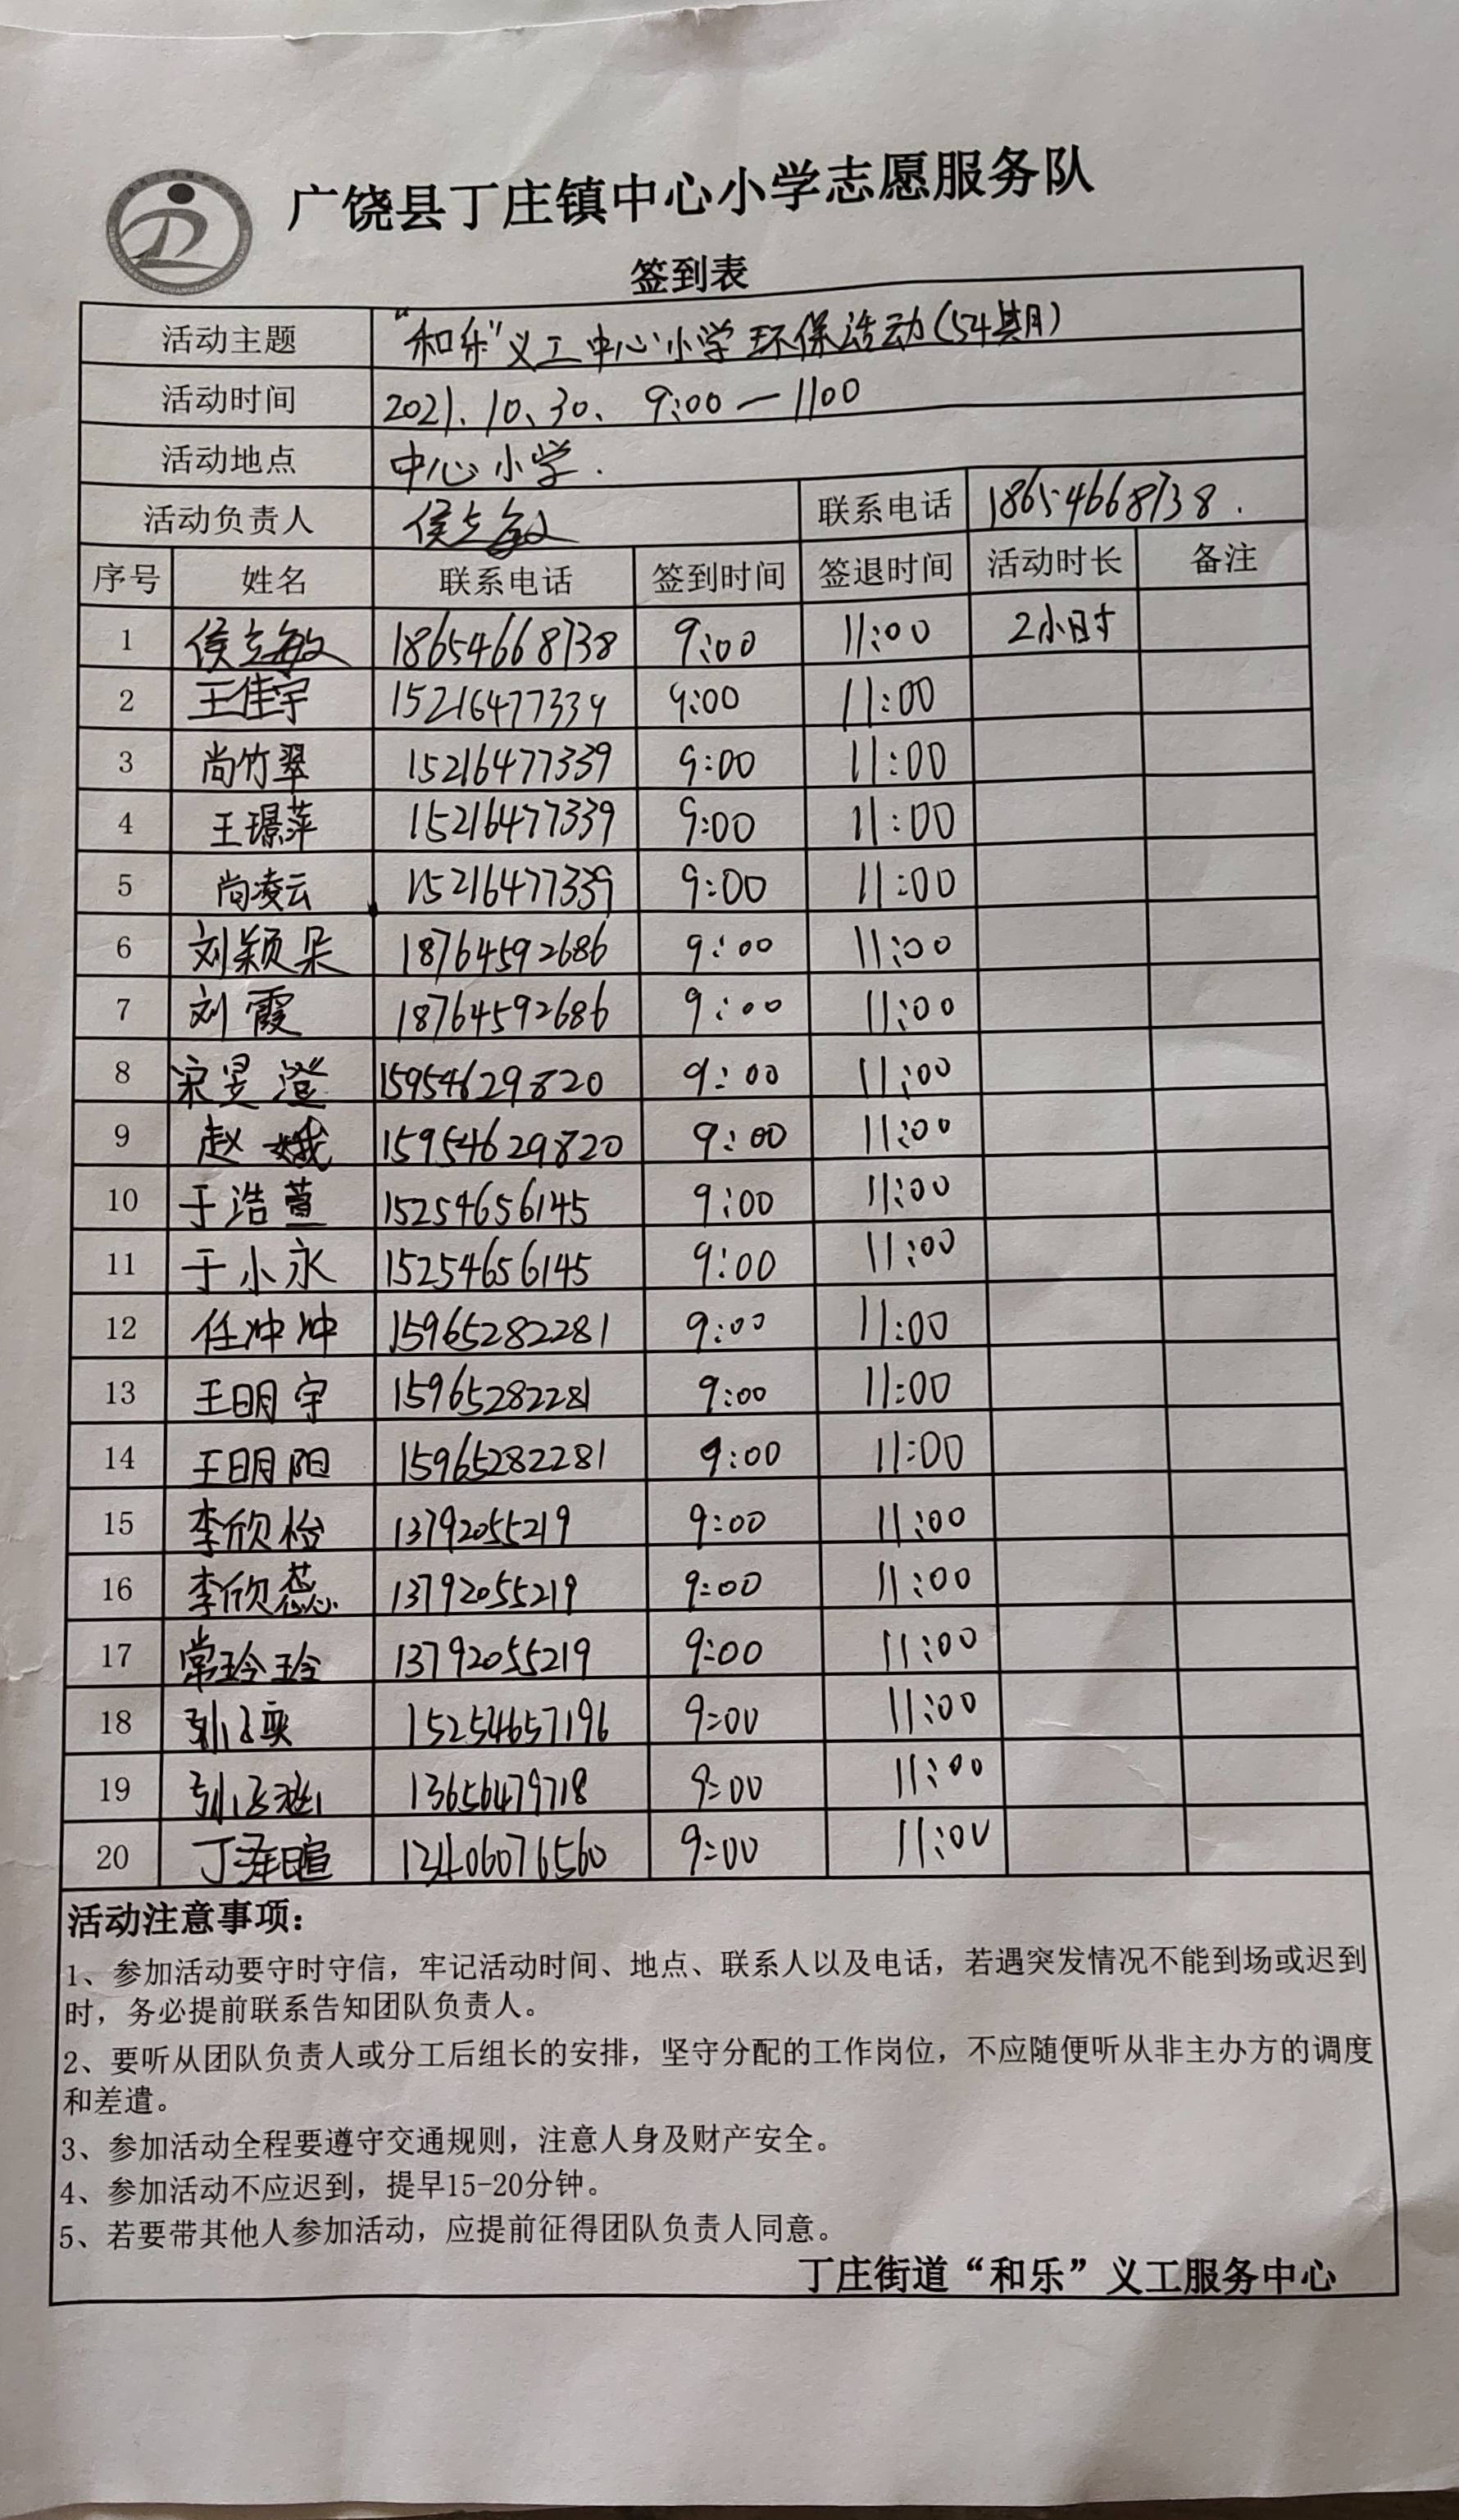 广饶县丁庄镇中心小学志愿服务队
签到表
活动主题 “和乐”义工中心小学环保活动(54期)
活动时间 2021.10、30、 9:00—1100
活动地点 中心小学.
活动负责人 侯立敏 联系电话 18654668738.
序号 姓名 联系电话 签到时间 签退时间 活动时长 备注
1 侯立敏 18654668738 9:00 11:00 2小时
2 王佳宇 15216477339 9:00 11:00
3 尚竹翠 15216477339 9:00 11:00
4 王璟萍 15216477339 9:00 11:00
5 尚凌云 15216477339 9:00 11:00
6 刘颖朵 18764592686 9:00 11:00
7 刘霞 18764592686 9:00 11:00
8 宋昱澄 15954629820 9:00 11:00
9 赵娥 15954629820 9:00 11:00
10 于浩萱 15254656145 9:00 11:00
11 于小永 15254656145 9:00 11:00
12 任冲冲 15965282281 9:00 11:00
13 王明宇 15965282281 9:00 11:00
14 王明阳 15965282281 9:00 11:00
15 李欣怡 13792055219 9:00 11:00
16 李欣蕊 13792055219 9:00 11:00
17 常玲玲 13792055219 9:00 11:00
18 15254657196 9:00 11:00
19 13656479718 9:00 11:00
20 丁泽暄 13406076560 9:00 11:00
活动注意事项：
1、参加活动要守时守信，牢记活动时间、地点、联系人以及电话，若遇突发情况不能到场或迟到
时，务必提前联系告知团队负责人。
2、要听从团队负责人或分工后组长的安排，坚守分配的工作岗位，不应随便听从非主办方的调度
和差遣。
3、参加活动全程要遵守交通规则，注意人身及财产安全。
4、参加活动不应迟到，提早15-20分钟。
5、若要带其他人参加活动，应提前征得团队负责人同意。
丁庄街道“和乐”义工服务中心